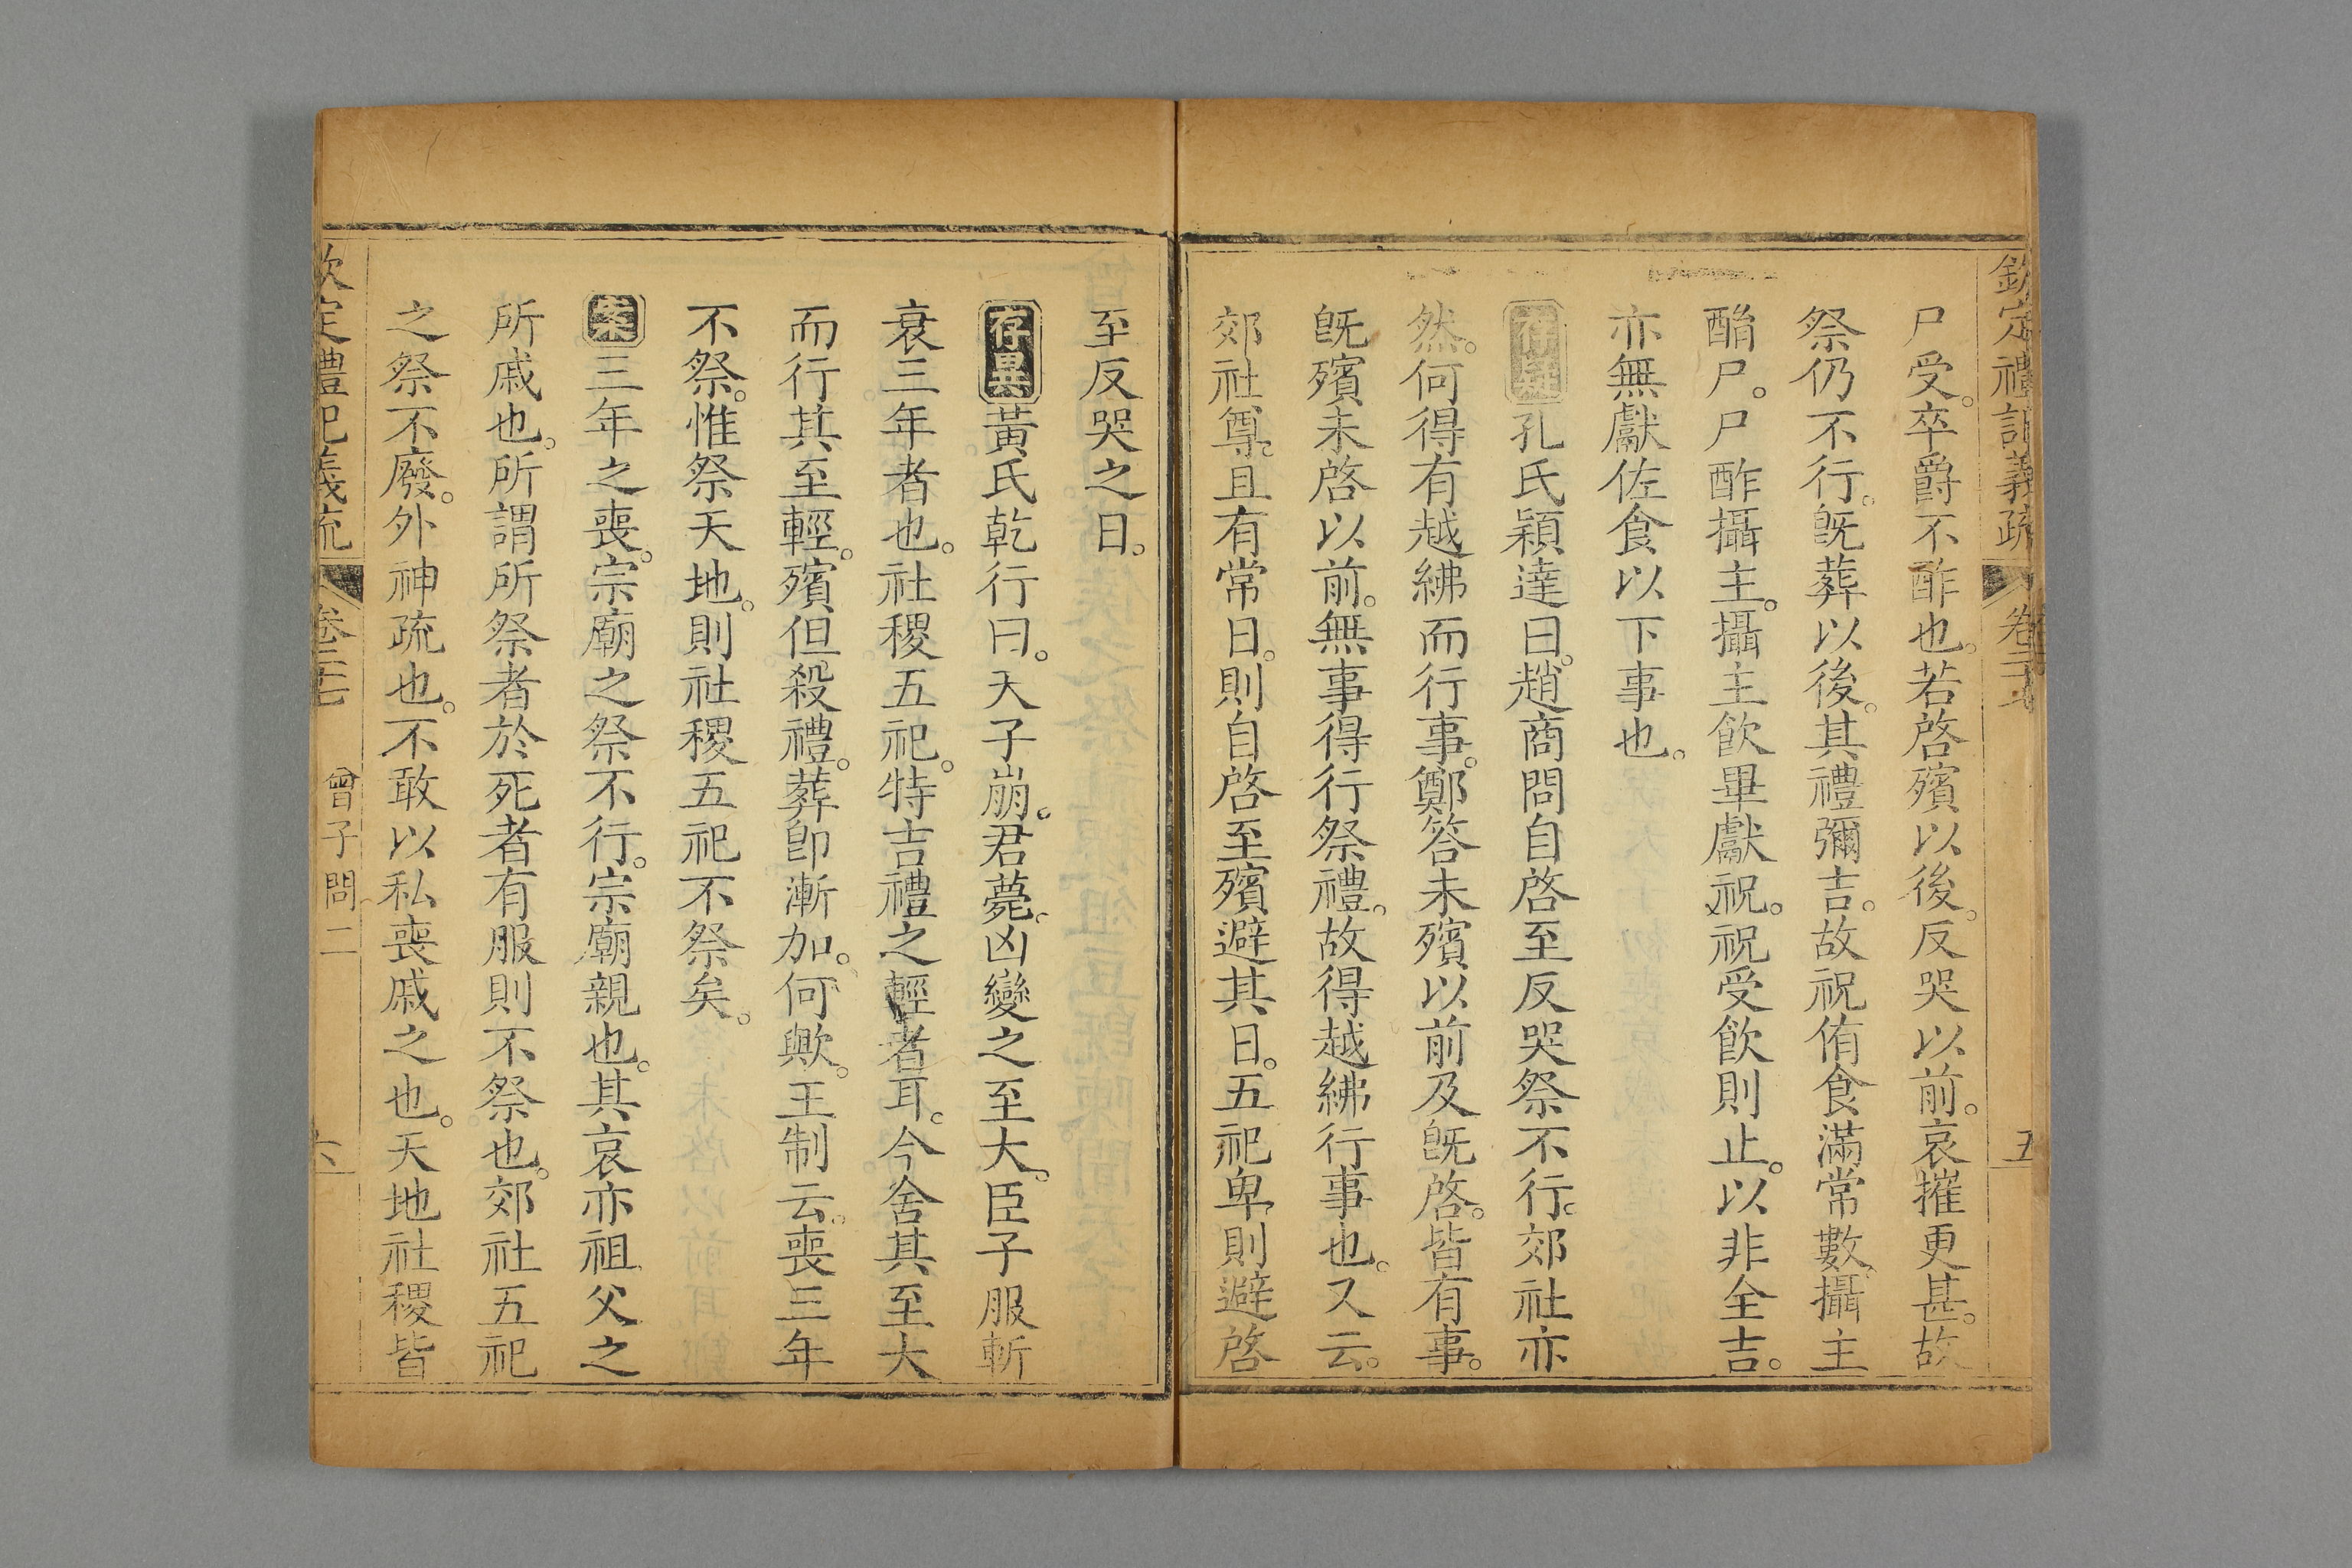 欽定禮記義疏 卷二十七 五
尸受。卒爵不酢也。若啓殯以後。反哭以前。哀摧更甚。故
祭仍不行。旣葬以後。其禮彌吉。故祝侑食滿常數。攝主
酳尸。尸酢攝主。攝主飲畢獻祝。祝受飲則止。以非全吉。
亦無獻佐食以下事也。
孔氏穎達曰。趙商問自啓至反哭祭不行。郊社亦
然。何得有越紼而行事。鄭答未殯以前及旣啓。皆有事。
旣殯未啓以前。無事得行祭禮。故得越紼行事也。又云。
郊社尊。且有常日。則自啓至殯避其日。五祀卑。則避啓
至反哭之日。
存異黃氏乾行曰。天子崩。君薨。凶變之至大。臣子服斬
衰三年者也。社稷五祀。特吉禮之輕者耳。今舍其至大
而行其至輕。殯但殺禮。葬卽漸加。何歟。王制云。喪三年
不祭。惟祭天地。則社稷五祀不祭矣。
案三年之喪。宗廟之祭不行。宗廟親也。其哀亦祖父之
所戚也。所謂所祭者於死者有服則不祭也。郊社五祀
之祭不廢。外神疏也。不敢以私喪戚之也。天地社稷皆
欽定禮記義疏 卷二十七 曾子問二 六